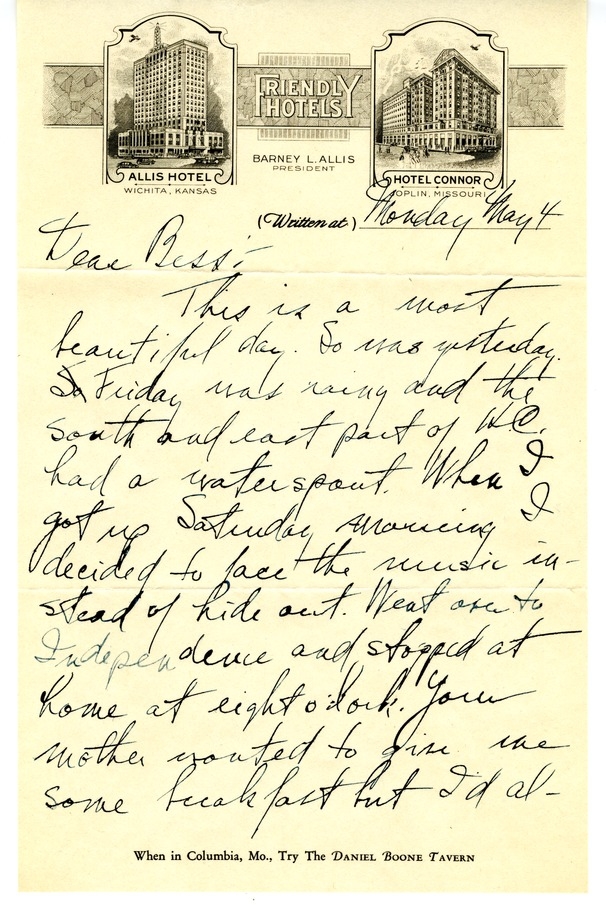 FRIENDLY
HOTELS
BARNEY L. ALLIS
PRESIDENT
ALLIS HOTEL
WICHITA, KANSAS
HOTEL CONNOR
JOPLIN, MISSOURI
(Written at) Monday May 4
Dear Bess:-
This is a most
beautiful day. So was yesterday.
Friday was rainy and the
south and east part of K.C.
had a waterspout. When I
got up Saturday morning I
decided to face the music in-
stead of hide out. Went over to
Independence and stopped at
home at eight o'clock. Your
mother wanted to give me
some breakfast but I'd al-
When in Columbia, Mo., Try The DANIEL BOONE TAVERN